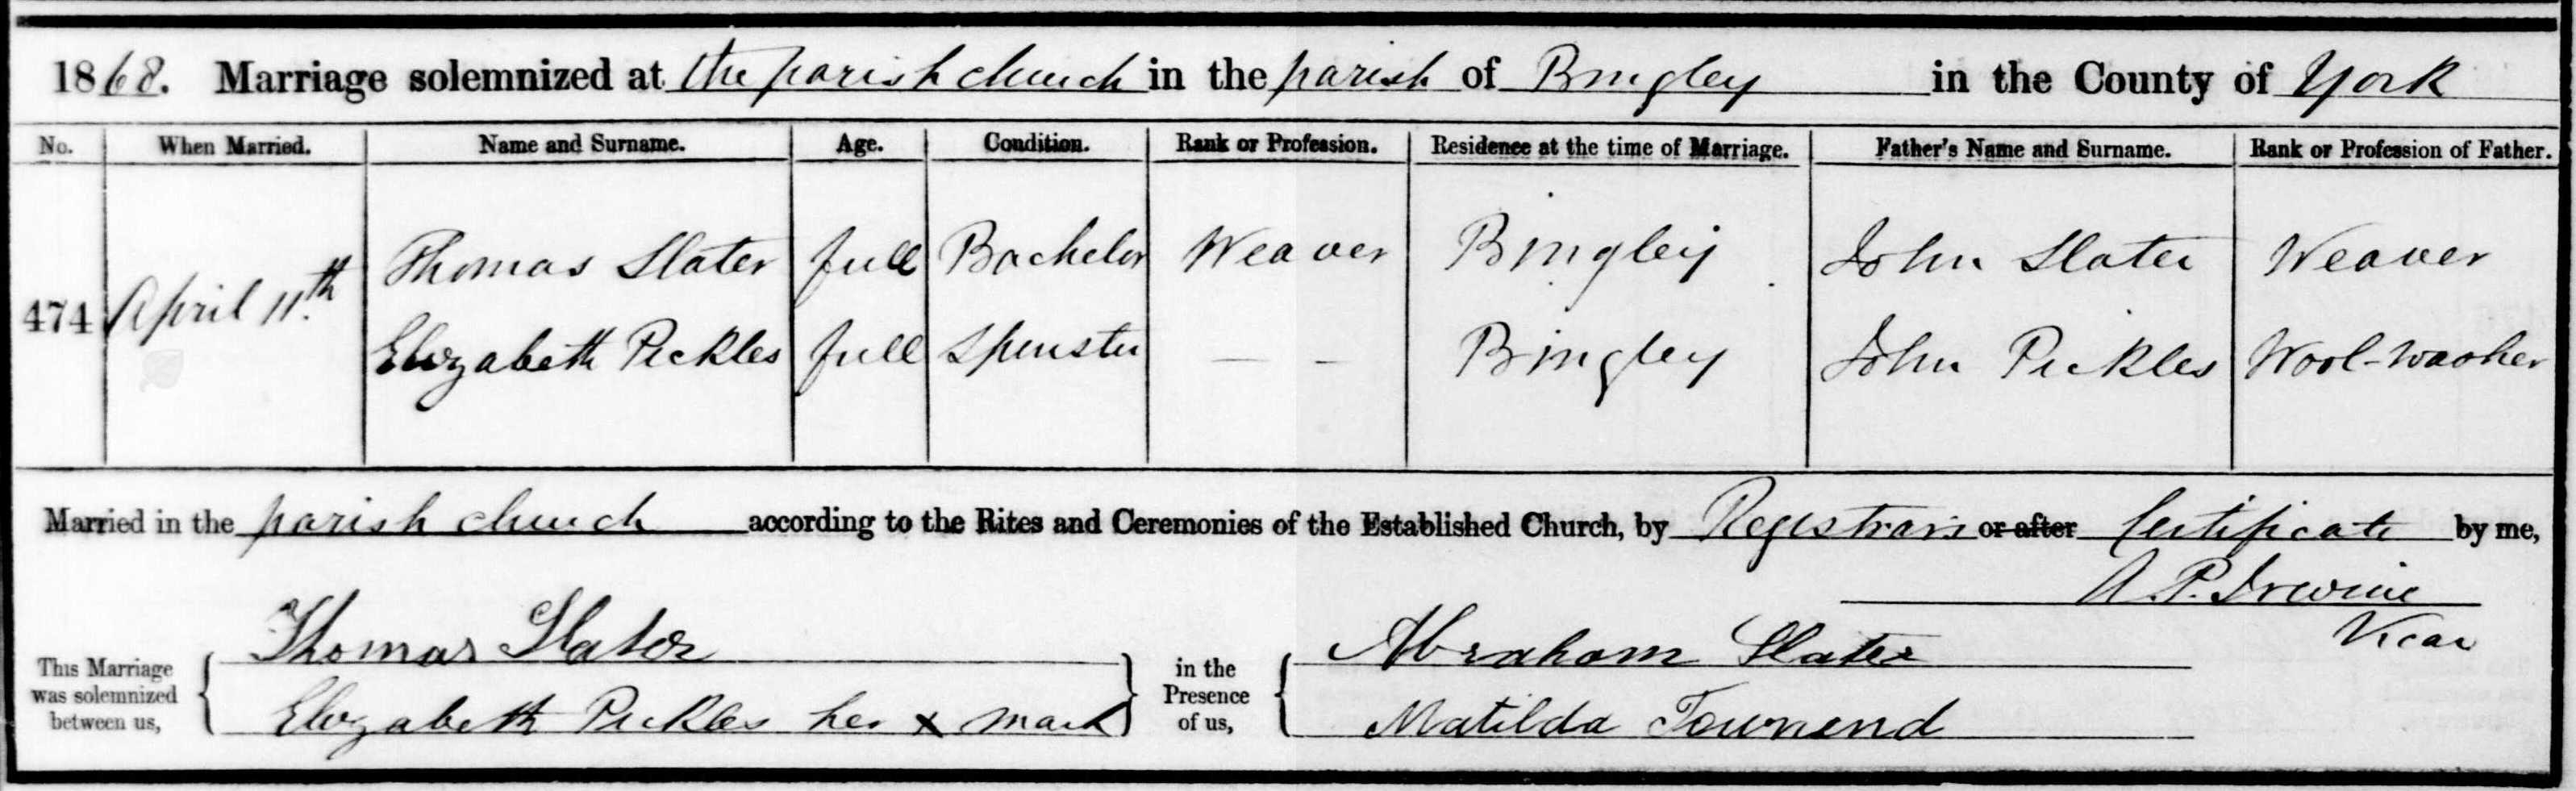 1868. Marriage solemnized at the parish church in the parish of Bingley in the County of York
No. When Married. Name and Surname. Age. Condition. Rank or Profession. Residence at the time of Marriage. Father's Name and Surname. Rank or Profession of Father.
474 April 11th
Thomas Slater full Bachelor Weaver Bingley John Slater Weaver
Elizabeth Pickles full Spinster — - Bingley John Pickles Wool-washer
Married in the parish church according to the Rites and Ceremonies of the Established Church, by Registrars or after Certificate by me,
A. P. Irwine
Vicar
This Marriage was solemnized between us,
Thomas Slater
Elizabeth Pickles her x mark
in the Presence of us,
Abraham Slater
Matilda Townend